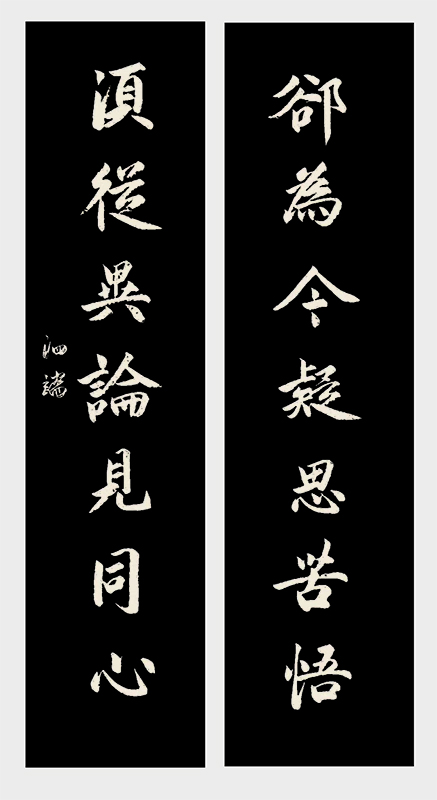 卻為今疑思苦悟
須從異論見同心